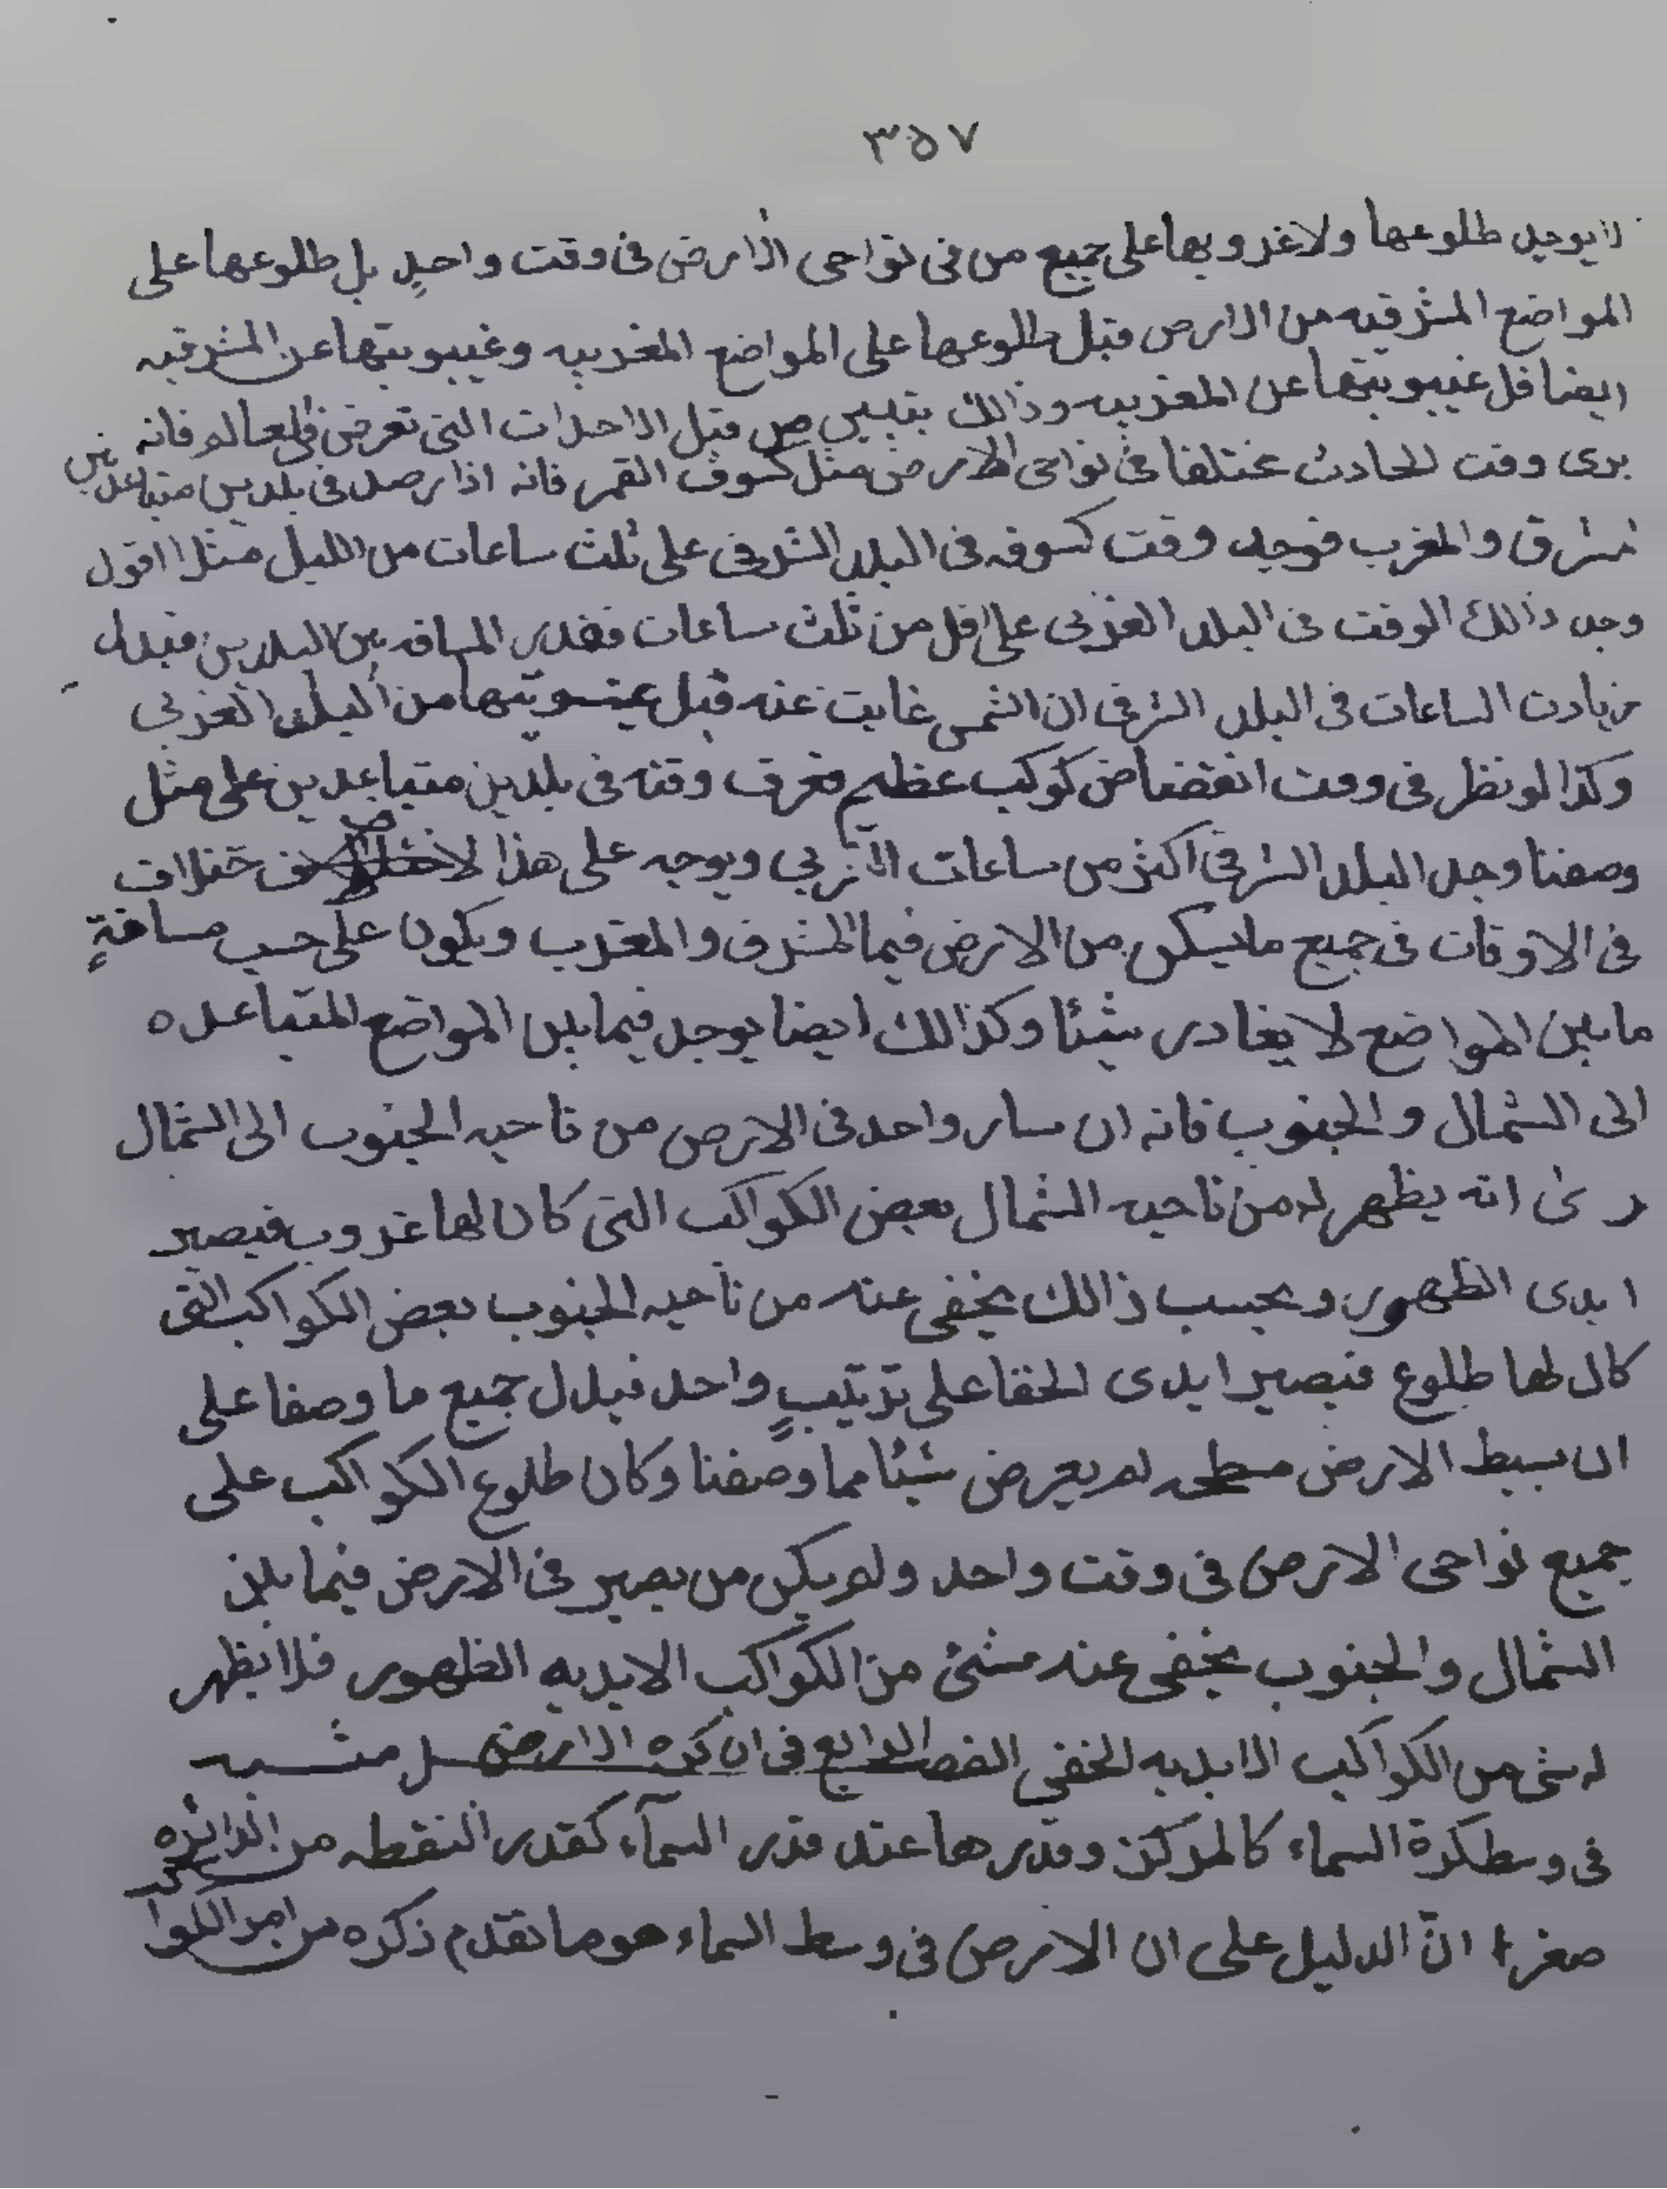 ٣٥٧
لا يوجد طلوعها ولا غروبها على جميع من فى نواحى الارض فى وقت واحدٍ بل طلوعها على
المواضع المشرقيه من الارض قبل طلوعها على المواضع المغربيه وغيبوبتها عن المشرقيه
ايضا قبل غيبوبتها عن المغربيه وذالك يتبين من قبل الاحداث التى تعرض فى العالم فانه
يرى وقت الحادث مختلفا فى نواحى الارض مثل كسوف القمر فانه اذا رصد فى بلدين متباعدين بين
المشرق والمغرب فوجد وقت كسوفه فى البلد الشرقى على ثلث ساعات من الليل مثلا اقول
وجد ذالك الوقت فى البلد الغربى على اقل من ثلث ساعات فقدر المسافه بين البلدين فتدل
زيادت الساعات فى البلد الشرقى ان الشمس غابت عنه قبل غيبوبتها من البلد الغربى
وكذا لو نظر فى وقت انقضاض كوكب عظيم فعرف وقته فى بلدين متباعدين على مثل
وصفنا وجد البلد الشرقى اكثر من ساعات الغربي ويوجه على هذا خلاف
فى الاوقات فى جميع ما يسكن من الارض فيما المشرق والمغرب ويكون على حسب مسافةٍ
ما بين المواضع لا يغادر شيئا وكذالك ايضا يوجد فيما بين المواضع المتباعده
الى الشمال والجنوب فانه ان سار واحد فى الارض من ناحيه الجنوب الى الشمال
رىٰ انه يظهر له من ناحيه الشمال بعض الكواكب التى كان لها غروب فيصير
ابدى الظهور وبحسب ذالك يخفى عنه من ناحيه الجنوب بعض الكواكب التى
كان لها طلوع فيصير ابدى الخفا على ترتيبٍ واحد فيدل جميع ما وصفا على
ان بسيط الارض مسطحه لم يعرض شيئا مما وصفنا وكان طلوع الكواكب على
جميع نواحى الارض فى وقت واحد ولم يكن من يصير فى الارض فيما بين
الشمال والجنوب يخفى عنه شئ من الكواكب الابديه الظهور فلا يظهر
له شئ من الكواكب الابديه الخفى الفصل الرابع فى ان كره الارض مثبته
فى وسط كرة السماء كالمركز وقدرها عند قدر السمآء كقدر النقطه من الدائره
صغرا انّ الدليل على ان الارض فى وسط السماء هو ما تقدم ذكره من امر الكوا